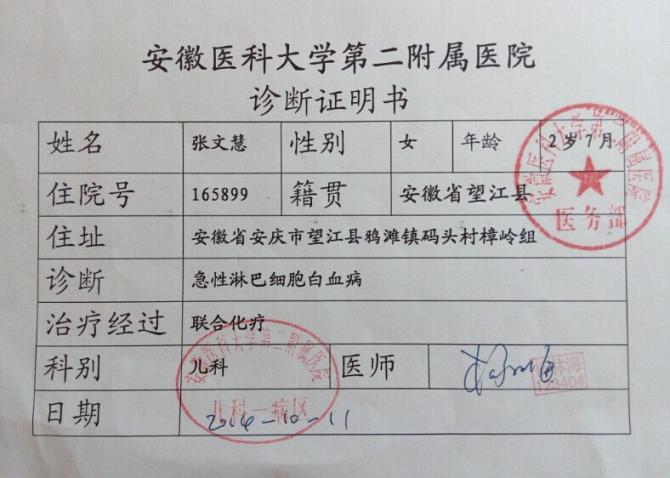 安徽医科大学第二附属医院
诊断证明书
姓名 张文慧 性别 女 年龄 2岁7月
住院号 165899 籍贯 安徽省望江县
住址 安徽省安庆市望江县鸦滩镇码头村樟岭组
诊断 急性淋巴细胞白血病
治疗经过 联合化疗
科别 儿科 医师
日期 2014-10-11
安徽医科大学第二附属医院
医务部
安徽医科大学第二附属医院
儿科一病区